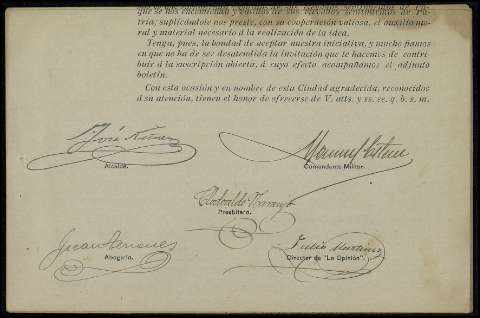 que se nos encomienda y
tria, suplicándole nos preste, con su cooperación valiosa, el auxilio mo-
ral y material necesario á la realización de la idea.
Tenga, pues, la bondad de aceptar nuestra iniciativa, y mucho fiamos
en que no ha de ser desatendida la invitación que le hacemos de contri-
buir á la suscripción abierta, á cuyo efecto acompañamos el adjunto
boletín.
Con esta ocasión y en nombre de esta Ciudad agradecida, reconocidos
á su atención, tienen el honor de ofrecerse de V. atts. y ss. ss. q. b. s. m.
José
Alcalde.
Comandante Militar.
Presbítero.
Juan
Abogado.
Julio Martínez
Director de "La Opinión".